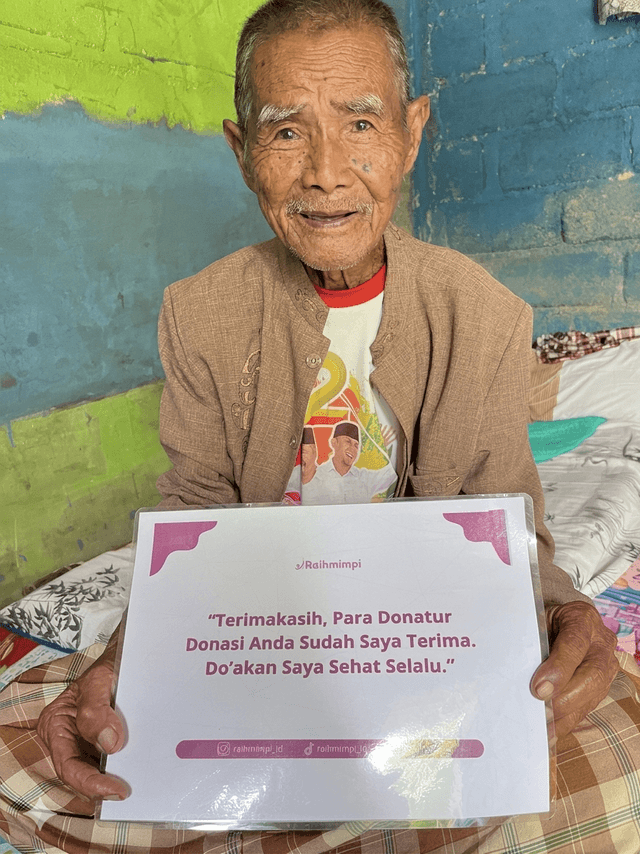 Raihmimpi
“Terimakasih, Para Donatur
Donasi Anda Sudah Saya Terima.
Do’akan Saya Sehat Selalu.”
raihmimpi_id raihmimpi_id
2